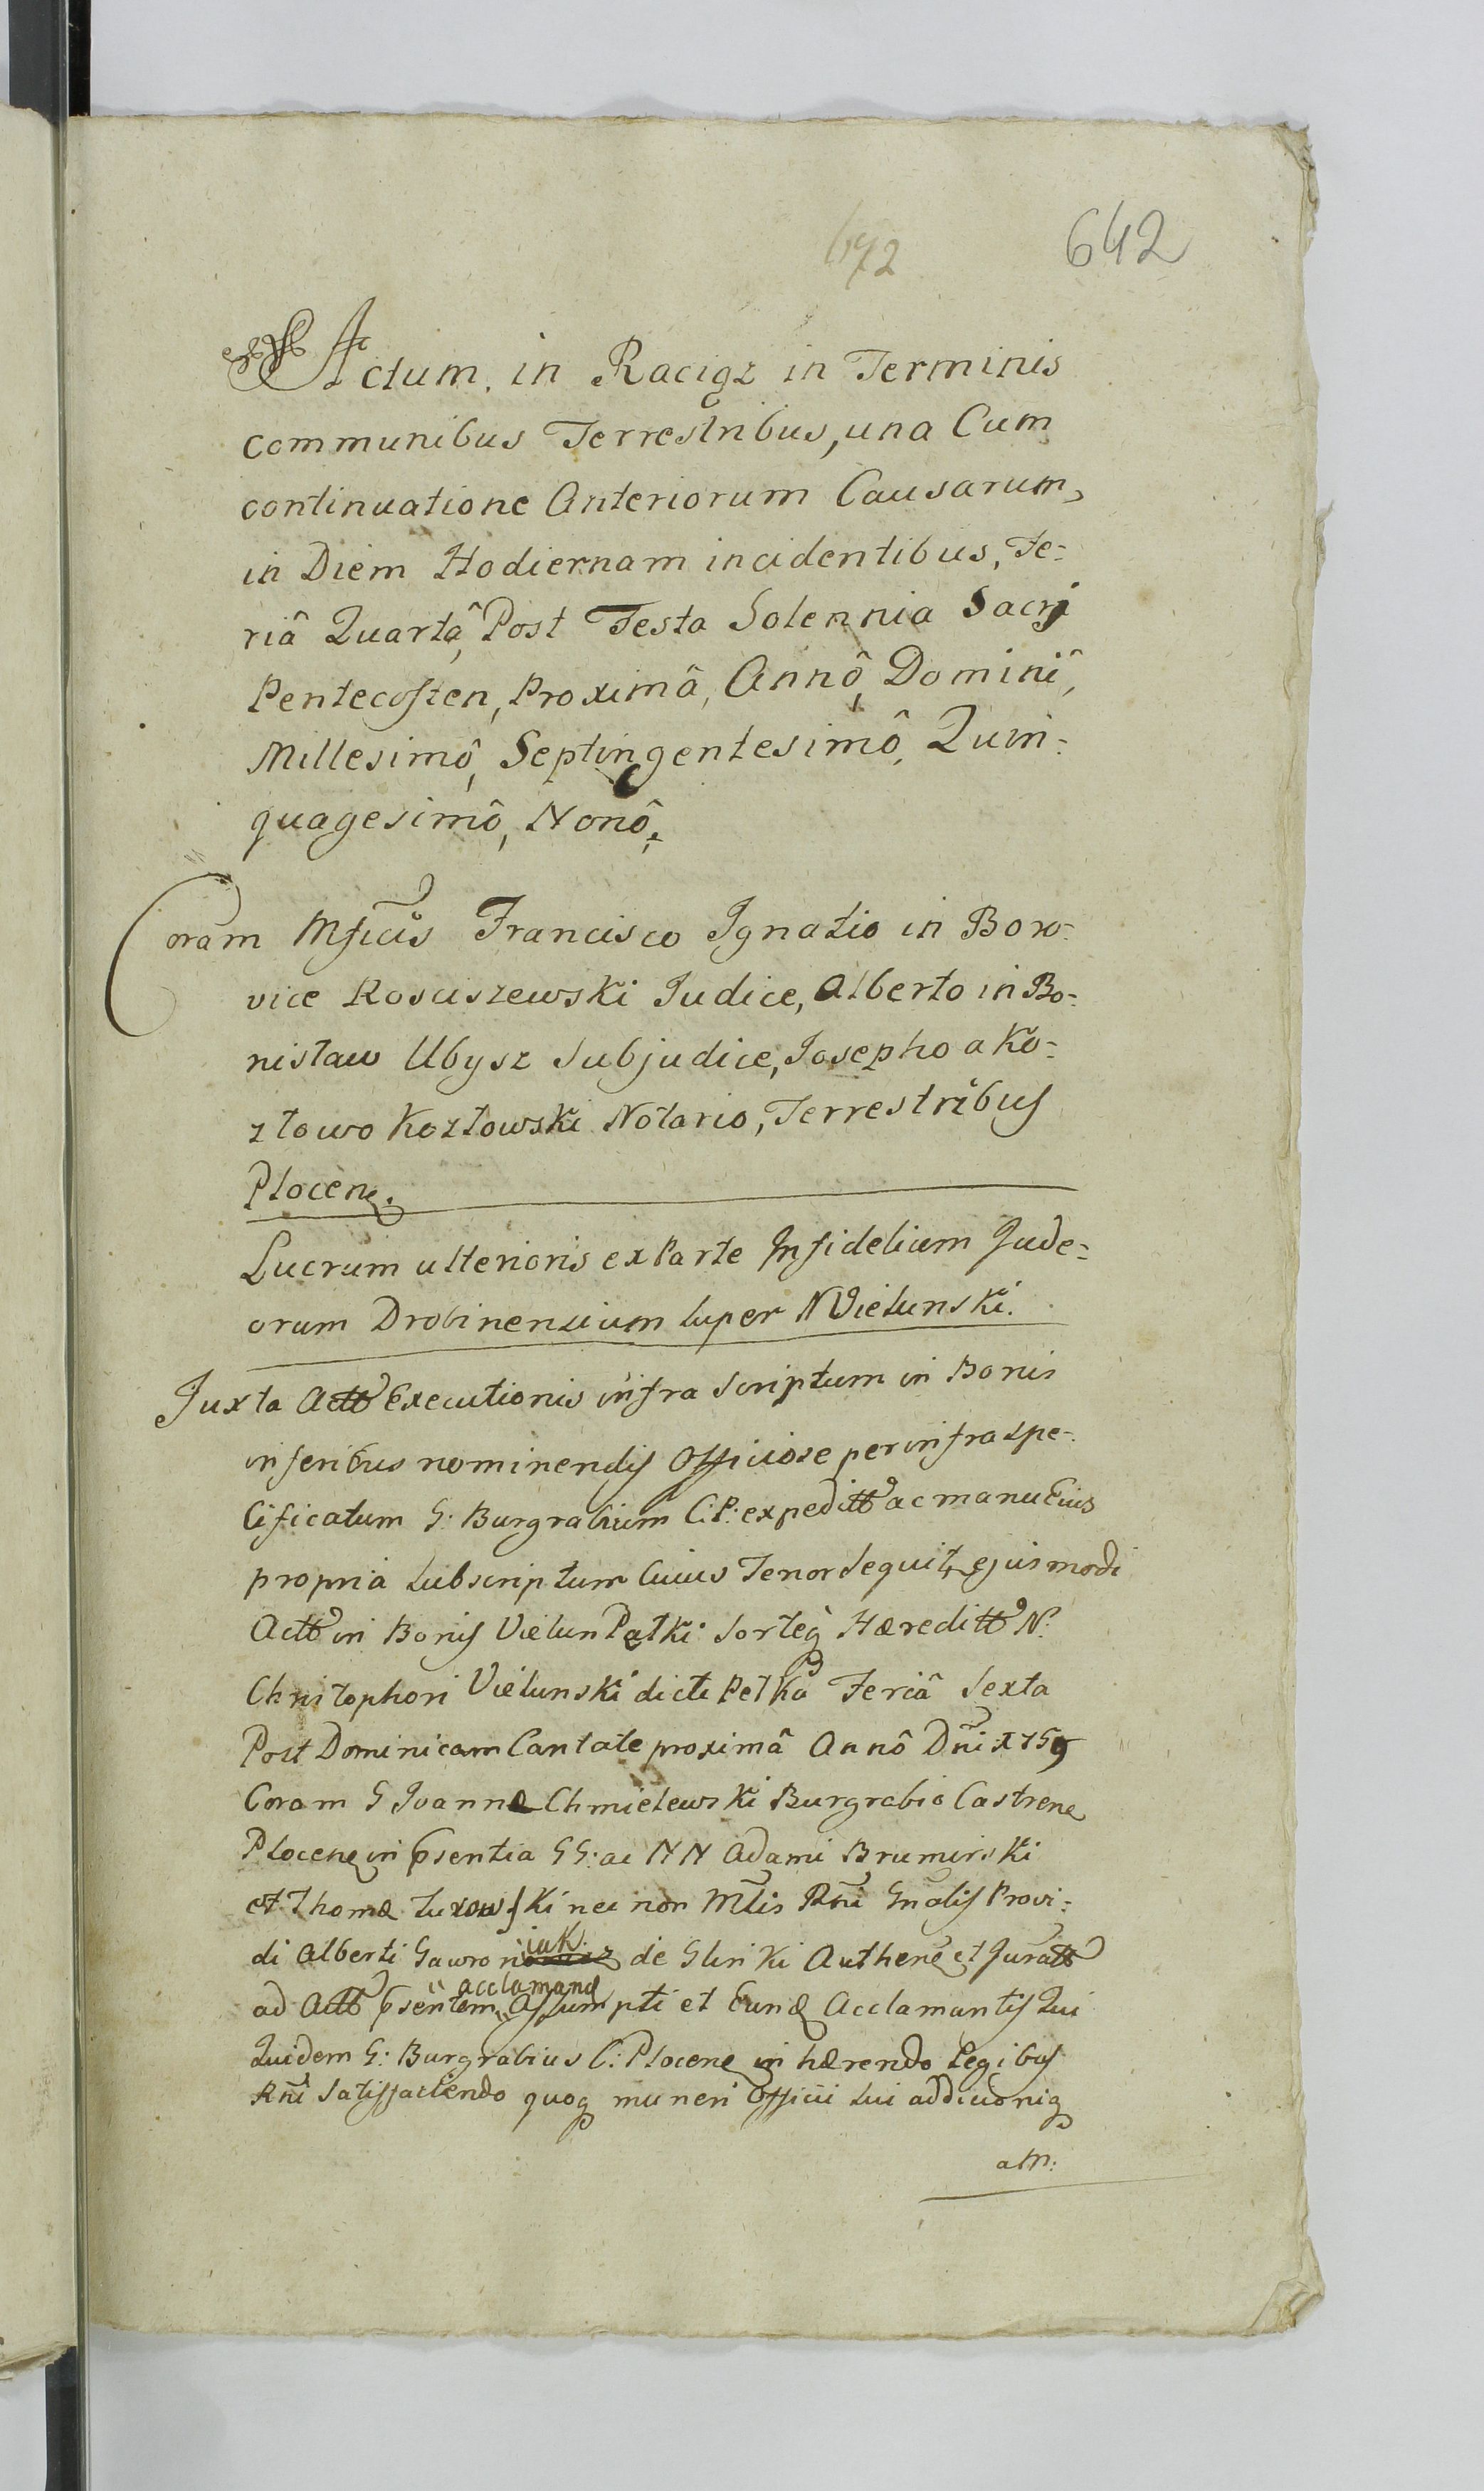 672 642
Actum in Raciąz in Terminis
communibus Terrestribus, una Cum
continuatione Anteriorum Causarum,
in Diem Hodiernam incidentibus, Fe-
riâ Quartâ, Post Festa Solennia Sacrj
Pentecosten, Proximâ, Annô, Dominî,
Millesimô, Septingentesimô, Quin-
quagesimô, Nonô,
Coram Mficis Francisco Ignatio in Boro-
vice Kosciszewski Judice, Alberto in Bo-
nisław Ubysz Subjudice, Josepho a Ko-
złowo Kozłowski Notario, Terrestribus
Plocen.
Lucrum ulterioris ex Parte Infidelium Jude-
orum Drobinensium super N Vielunski.
Juxta Actt Executionis infra scriptum in Bonis
inferibus nominendis Officiose per infra spe-
cificatum G: Burgrabium C: P: expeditt ac manu Eius
propria Subscriptum Cuius Tenor Sequit ejusmodi
Actt in Bonis Vielun Pętki Sorteq Hæreditt N:
Christophori Vielunski dicti Petka Feriâ Sexta
Post Dominicam Cantate proximâ Annô Dni 1759
Coram G Joanne Chmielewski Burgrabio Castrene
Plocene in Psentia GG: ac NN Adami Brumirski
et Thomæ nec non Mtlis Rni Gnalis Provi-
di Alberti Gawroniak. de Glinki Authene et Juratt
ad Actt Psentem acclamand Assumpti et Eund Acclamantis Qui
Quidem G: Burgrabius C: Plocene in hærendo Legibus
Rni Satisfaciendo quoq muneri Officii Sui
am: